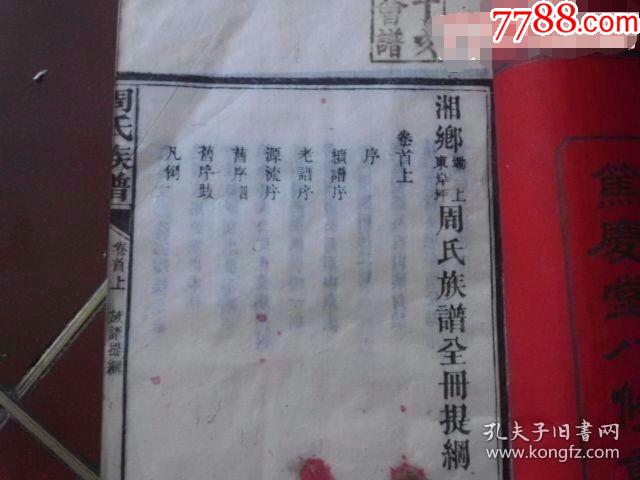 7788.com
會譜
湘鄉坳上東岸坪周氏族譜全冊提綱
卷首上
序
續譜序
老譜序
源流序
舊序四
舊序跋
凡例
周氏族譜
卷首上
族譜提綱
篤慶堂八修
孔夫子旧书网
KONGFZ.COM